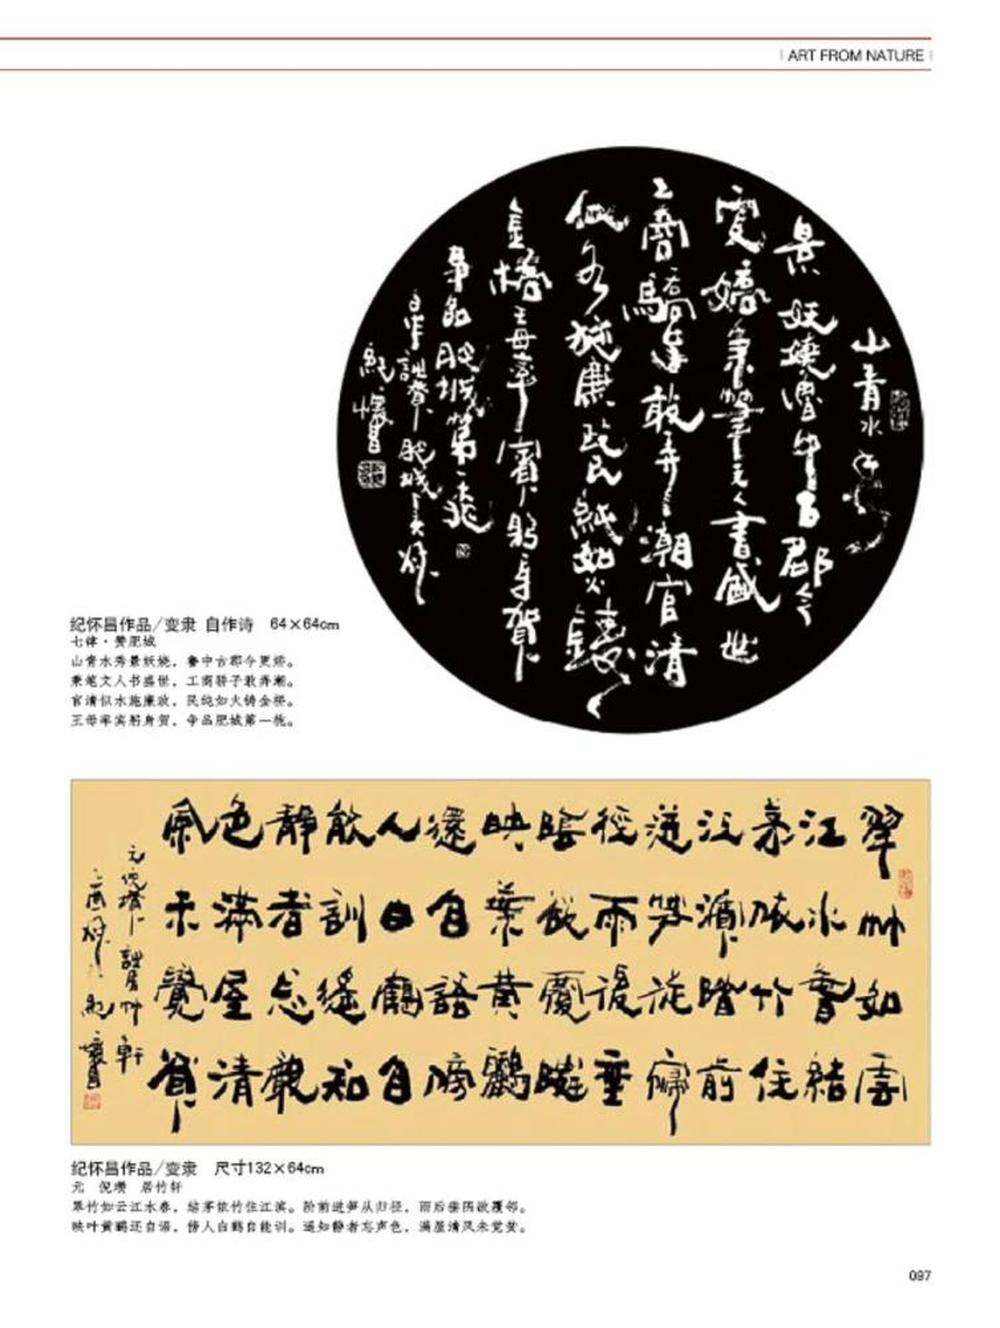 ART FROM NATURE
山青水秀
景妖嬈魯中古郡今
更嬌秉筆文人書盛世
工商驕子敢弄潮官清
似水施廉政民純如火鑄
金橋王母率賓躬身賀
爭品肥城第一桃
自作詩贊肥城
紀懷昌
纪怀昌作品/变隶 自作诗 64×64cm
七律·赞肥城
山青水秀景妖娆，鲁中古郡今更娇。
秉笔文人书盛世，工商骄子敢弄潮。
官清似水施廉政，民纯如火铸金桥。
王母率宾躬身贺，争品肥城第一桃。
翠竹如雲
江水春結
茅依竹住
江濱階前
迸笋從歸
徑雨後垂
陰欲覆鄰
映葉黃鸝
還自語傍
人白鶴自
能訓遙知
靜者忘聲
色滿屋清
風未覺貧
元倪瓚詩居竹軒
紀懷昌
纪怀昌作品/变隶 尺寸132×64cm
元 倪瓒 居竹轩
翠竹如云江水春，结茅依竹住江滨。阶前迸笋从归径，雨后垂阴欲覆邻。
映叶黄鹂还自语，傍人白鹤自能训。遥知静者忘声色，满屋清风未觉贫。
097